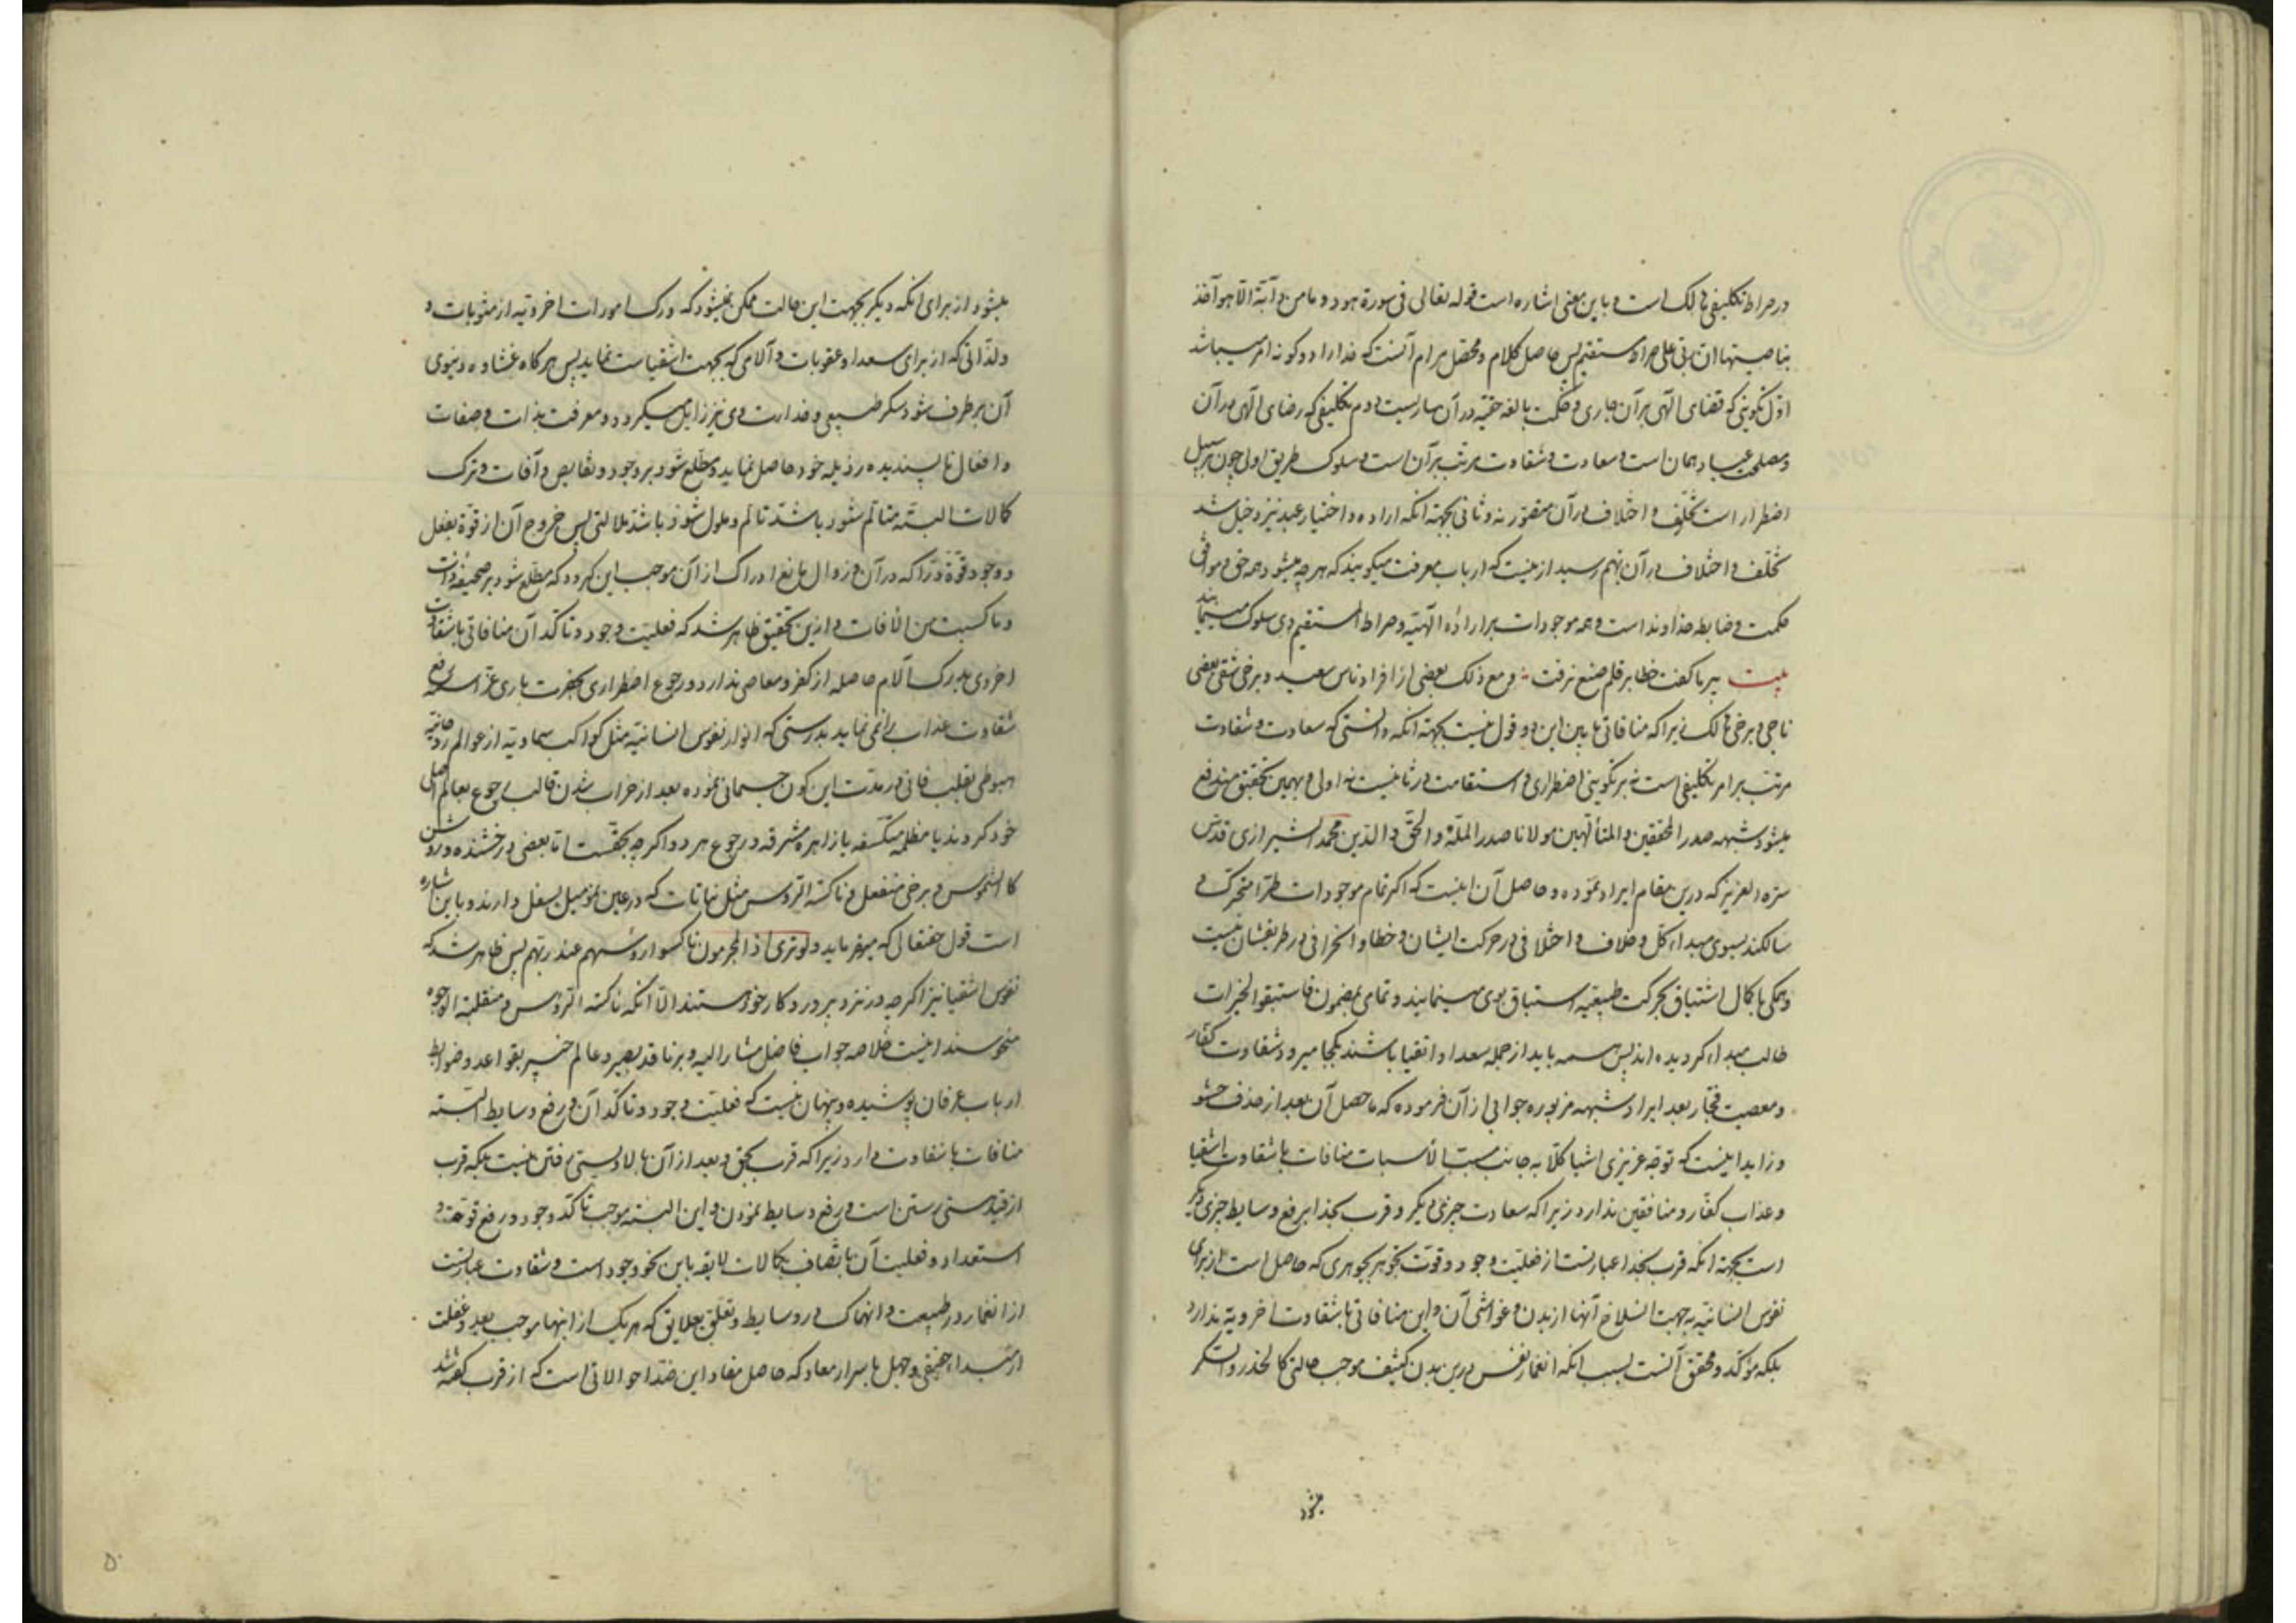 در صراط تکلیفی هالک است و باین معنی اشاره است قوله تعالی فی سورة هود و ما من دابّة الّا هو آخذ
بناصیتها ان ربی علی صراط مستقیم پس حاصل کلام و محصّل مرام آنست که خدا را دو گونه امر میباشد
اوّل تکوینی که قضای الهی بر آن جاری و حکمت بالغه حقیّه در آن ساریست دوم تکلیفی که رضای الهی در آن
و مصلحت عباد همان است و سعادت و شقاوت مرتّب بر آن است و سلوک طریق اولی چون بر سبیل
اضطرار است تخلّف و اختلاف در آن متصوّر نه و ثانی بجهته انکه اراده و اختیار عبد نیز دخیل شد
تخلّف و اختلاف در آن بهم رسید ازینست که ارباب معرفت میگویند که هر چه میشود همه حق و موافق
حکمت و ضابطه خداوند است و همه موجودات بر اراده الهیّه و صراط المستقیم وی سلوک مینمایند
بیت پیر ما گفت خطا بر قلم صنع نرفت و مع ذلک بعضی از افراد ناس سعید و برخی شقی بعضی
ناجی و برخی هالک زیرا که منافاتی ما بین این دو قول نیست بجهته انکه دانستی که سعادت و شقاوت
مرتب بر امر تکلیفی است نه بر تکوینی اضطراری و استقامت در ثانیست نه اولی و بهمین تحقیق مندفع
میشود شبهه صدر المحققین و المتألهین مولانا صدر الملّة و الحقّ و الدّین محمد الشیرازی قدّس
سرّه العزیز که درین مقام ایراد نموده و حاصل آن اینست که اگر تمام موجودات طرّا متحرک و
سالکند بسوی مبداء کل و خلاف و اختلافی در حرکت ایشان و خطا و انحرافی در طریقشان نیست
و همگی با کمال اشتیاق بحرکت طبیعیّه استباق بوی مینمایند و تمامی بمضمون فاستبقوا الخیرات
طالب مبداء گردیده اند پس همه باید از جمله سعدا و اتقیا باشند بکجا میرود شقاوت کفّار
و معصیت فجّار بعد ایراد شبهه مزبوره جوابی از آن فرموده که ما حصل آن بعد از حذف حشو
و زاید اینست که توجّه غریزی اشیا کلّا به جانب مسبّب الأسباب منافات با شقاوت اشقیا
و عذاب کفّار و منافقین ندارد زیرا که سعادت چیزی دیگر و قرب بخدا برفع وسایط چیزی دیگر
است بجهته انکه قرب بخدا عبارتست از فعلیّت وجود و قوّت تجوهر بجوهری که حاصل است از برای
نفوس انسانیّه به جهت انسلاخ آنها از بدن و غواشی آن و این منافاتی با شقاوت اخرویّه ندارد
بلکه مؤکّد و محقق آنست بسبب انکه انغمار نفس درین بدن کثیف موجب حالتی کالخدر و السکر
میشود
میشود از برای انکه دیگر بجهت این حالت ممکن نمیشود که درک امورات اخرویّه از مثوبات و
و لذّاتی که از برای سعدا و عقوبات و آلامی که بجهت اشقیاست نماید پس هر گاه غشاوه دنیوی
آن برطرف شود سکر طبیعی و خدارت وی نیز زایل میگردد و معرفت بذات و صفات
و افعال ناپسندیده رذیله خود حاصل نماید و مطّلع شود بر وجود و نقایص و آفات و ترک
کمالات البتّه متألم شود باشدّ تألم و ملول شود باشدّ ملالتی پس خروج آن از قوّة بفعل
و وجود قوّة درّاکه در آن و زوال مانع ادراک از آن موجب این گردد که مطّلع شود بر صحیفه ذات
و ما کسبت من الأفات و ازین تحقیق ظاهر شد که فعلیّت وجود و تأکّد آن منافاتی با شقاوت
اخروی بدرک آلام حاصله از کفر و معاصی ندارد و رجوع اضطراری بحضرت باری عزّ اسمه رفع
شقاوت عذاب را نمی نماید بدرستی که انوار نفوس انسانیّه مثل کواکب سماویّه از عوالم روحانیّه
هبوطی بقلب فانی در مدّت این کون جسمانی نموده بعد از خراب شدن قالب رجوع بعالم اصلی
خود کردند یا مظلمه منکسفه یا زاهره مشرقه و رجوع هر دو اگر چه بحقّست امّا بعضی درخشنده و روشن
کالشموس و برخی منفعل و ناکسة الرّوس مثل نباتات که در عین نموّ میل بسفل دارند و باین اشاره
است قول حقتعالی که میفرماید و لو تری اذ المجرمون ناکسوا رؤسهم عند ربّهم پس ظاهر شد که
نفوس اشقیا نیز اگر چه در نزد پروردگار خود هستند الّا انکه ناکسه الرّؤس و منقلبة الوجوه
منحوسند اینست خلاصه جواب فاضل مشار الیه و بر ناقد بصیر و عالم خبیر بقواعد و ضوابط
ارباب عرفان پوشیده و پنهان نیست که فعلیّت وجود و تأکّد آن و رفع وسایط البتّه
منافات با شقاوت دارد زیرا که قرب بحق و بعد از آن بالا و پستی رفتن نیست بلکه قرب
از قید هستی رستن است و رفع وسایط نمودن و این البتّه موجب تأکّد وجود و رفع قوّت و
استعداد و فعلیت آن باتّصاف بکمالات لایقه باین نحو وجود است و شقاوت عبارتست
از انغمار در طبیعت و انهماک در وسایط و تعلّق بعلایق که هر یک از اینها موجب بعد و غفلت
از مبداء حقیقی و جهل باسرار معاد که حاصل مفاد این ضدّ احوالاتی است که از قرب گفته شد